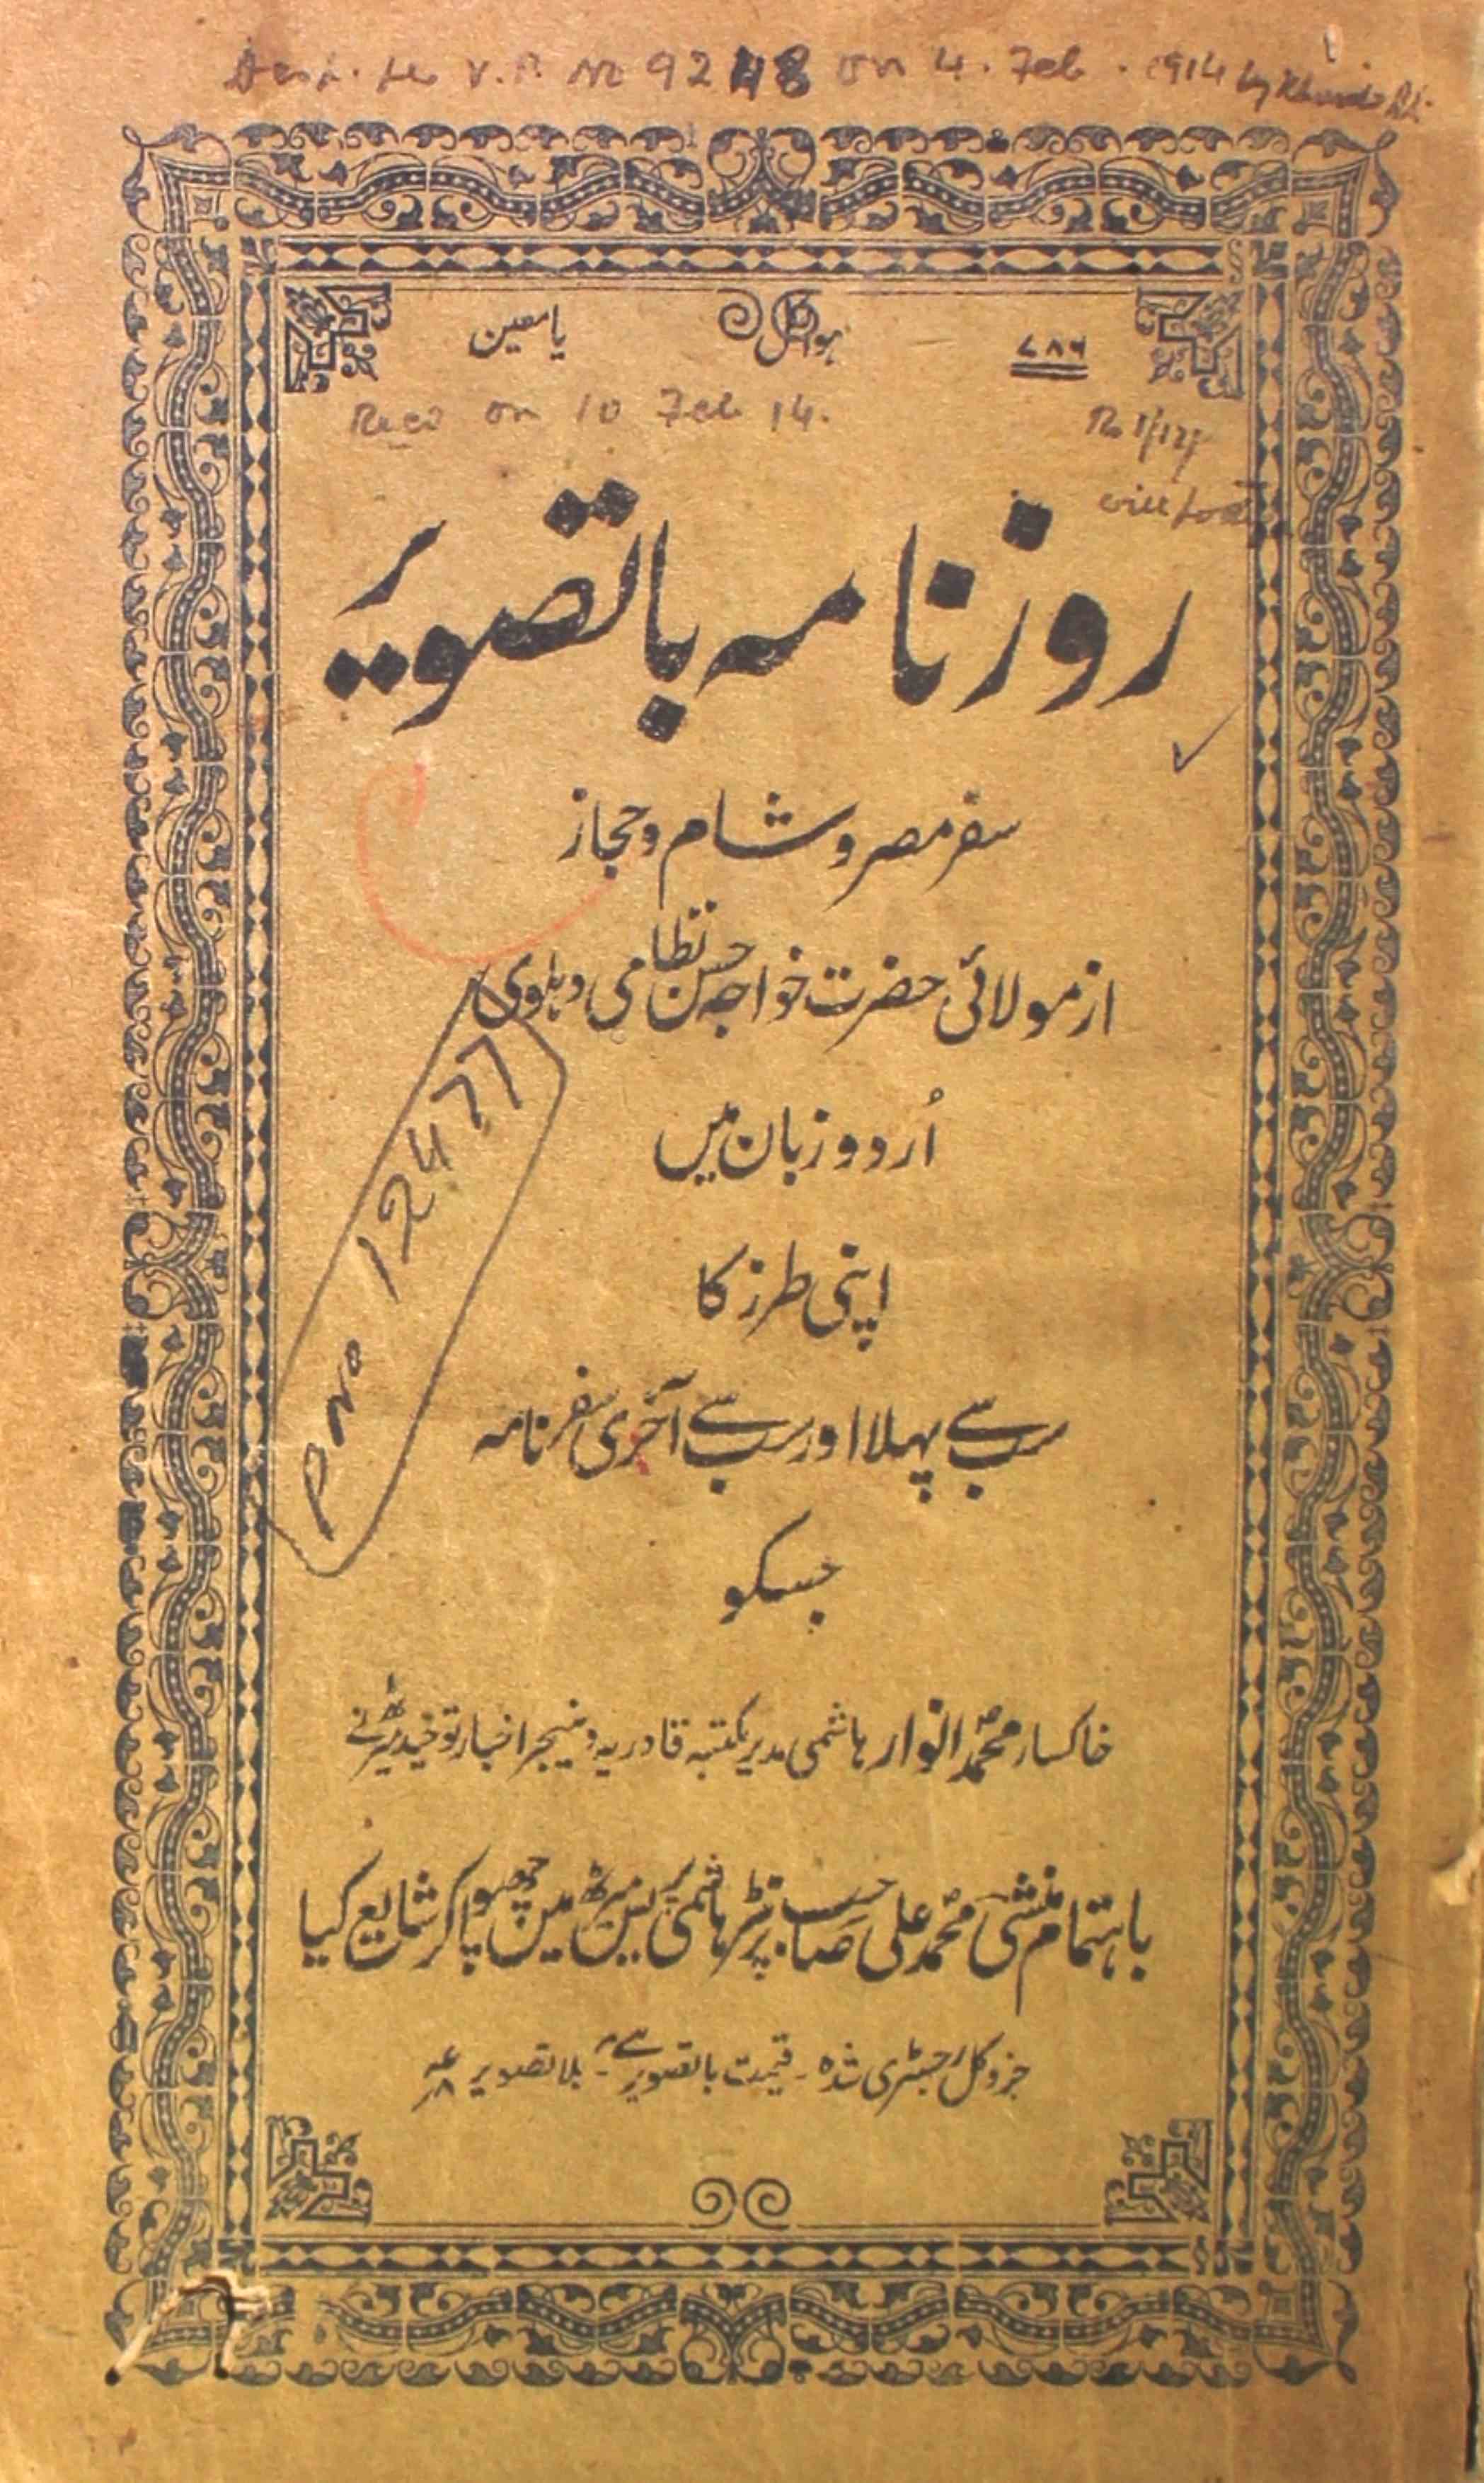 on 4. Feb. 1914 by
۷۸۶ ہوالکل یا معین
Recd on 10 Feb 14.
روزنامہ باتصویر
سفر مصر و شام و حجاز
از مولائی حضرت خواجہ حسن نظامی دہلوی
اُردو زبان میں
اپنی طرز کا
سب سے پہلا اور سب سے آخری سفرنامہ
جسکو
خاکسار محمد انوار ہاشمی مدیر مکتبہ قادریہ و منیجر اخبار توحید میرٹھ نے
باہتمام منشی محمد علی صاحب پرنٹر ہاشمی پریس میرٹھ میں چھپوا کر شایع کیا
جزو کل رجسٹری شدہ - قیمت باتصویر - بلا تصویر
12477